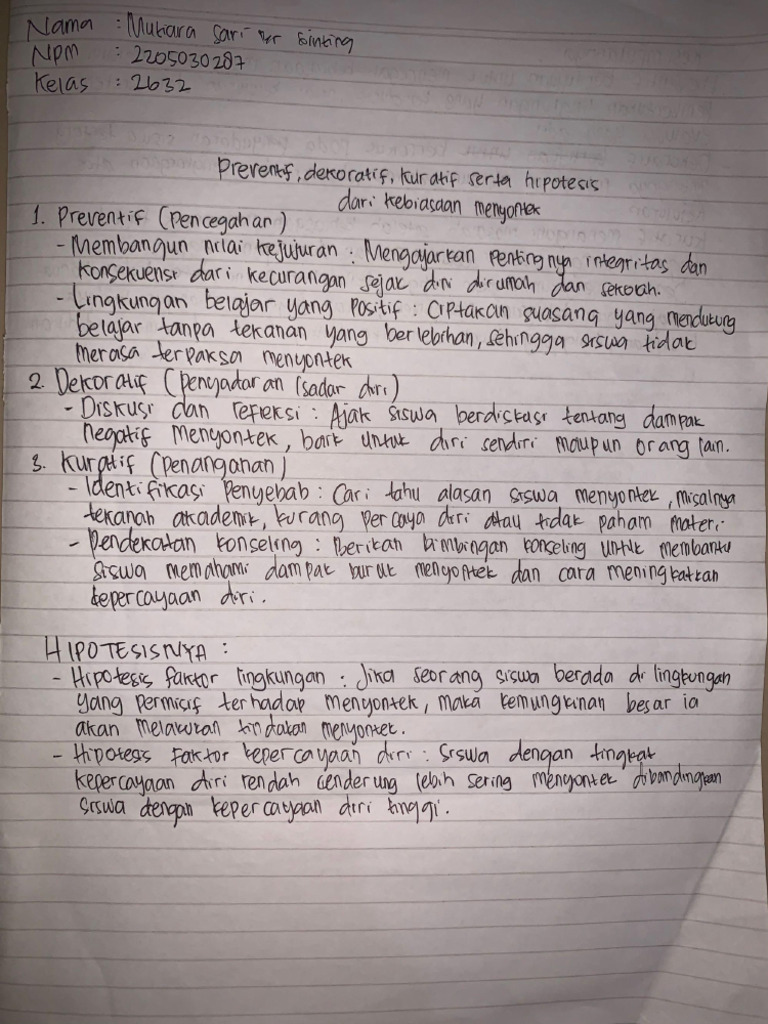 Nama : Mutiara Sari br Ginting
Npm : 2205030287
Kelas : 2632
Preventif, dekoratif, kuratif serta hipotesis
dari kebiasaan menyontek
1. Preventif (pencegahan)
- Membangun nilai kejujuran : Mengajarkan pentingnya integritas dan
konsekuensi dari kecurangan sejak dini dirumah dan sekolah.
- Lingkungan belajar yang positif : Ciptakan suasana yang mendukung
belajar tanpa tekanan yang berlebihan, sehingga siswa tidak
merasa terpaksa menyontek
2. Dekoratif (penyadaran (sadar diri)
- Diskusi dan refleksi : Ajak siswa berdiskusi tentang dampak
negatif menyontek, baik untuk diri sendiri maupun orang lain.
3. Kuratif (penanganan)
- Identifikasi Penyebab : Cari tahu alasan siswa menyontek, misalnya
tekanan akademik, kurang percaya diri atau tidak paham materi.
- Pendekatan konseling : Berikan bimbingan konseling untuk membantu
siswa memahami dampak buruk menyontek dan cara meningkatkan
kepercayaan diri.
HIPOTESISNYA :
- Hipotesis faktor lingkungan : Jika seorang siswa berada di lingkungan
yang permisif terhadap menyontek, maka kemungkinan besar ia
akan melakukan tindakan menyontek.
- Hipotesis Faktor kepercayaan diri : Siswa dengan tingkat
kepercayaan diri rendah cenderung lebih sering menyontek dibandingkan
siswa dengan kepercayaan diri tinggi.